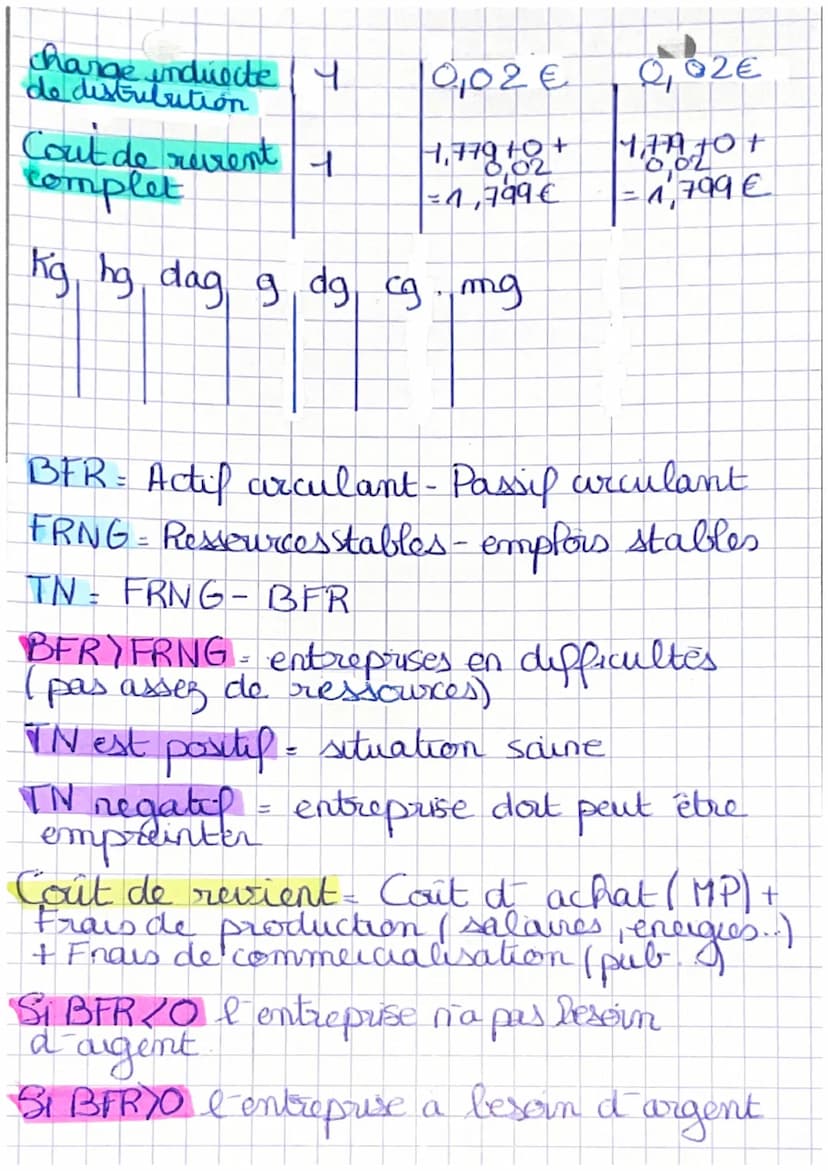 charge indirecte 1 0,02 € 0,02€
de distribution
Cout de revient 1 1,779+0+ 1,779+0+
complet 0,02 0,02
=1,799€ =1,799€
Kg hg dag g dg cg mg
BFR = Actif circulant - Passif circulant
FRNG = Ressources stables - emplois stables
TN = FRNG - BFR
BFR > FRNG = entreprises en difficultés
(pas assez de ressources)
TN est positif = situation saine
TN negatif = entreprise doit peut être
empreinter
Coût de revient = Coût d'achat (MP) +
Frais de production (salaires, energies..)
+ Frais de commercialisation (pub..)
Si BFR<0 l'entreprise n'a pas besoin
d'argent.
Si BFR>0 l'entreprise a besoin d'argent